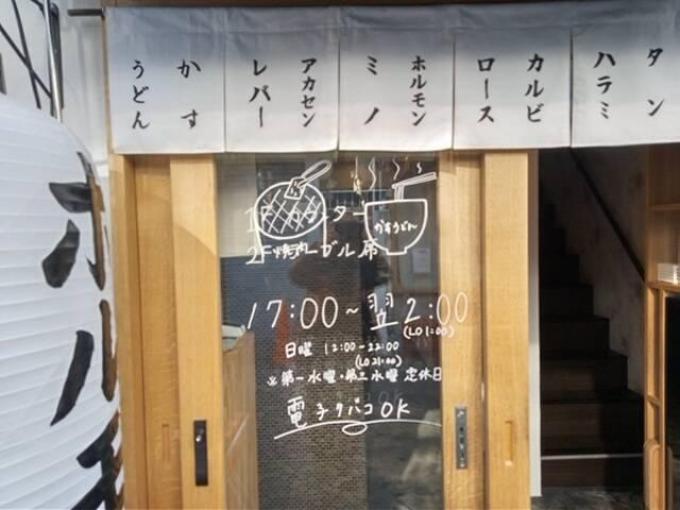 タン
ハラミ
カルビ
ロース
ホルモン
ミノ
アカセン
レバー
かす
うどん
1F カウンター
2F 焼肉テーブル席
かすうどん
17:00~翌2:00
(LO1:00)
日曜 12:00-22:00
(LO21:00)
※第一水曜・第三水曜 定休日
電子タバコOK